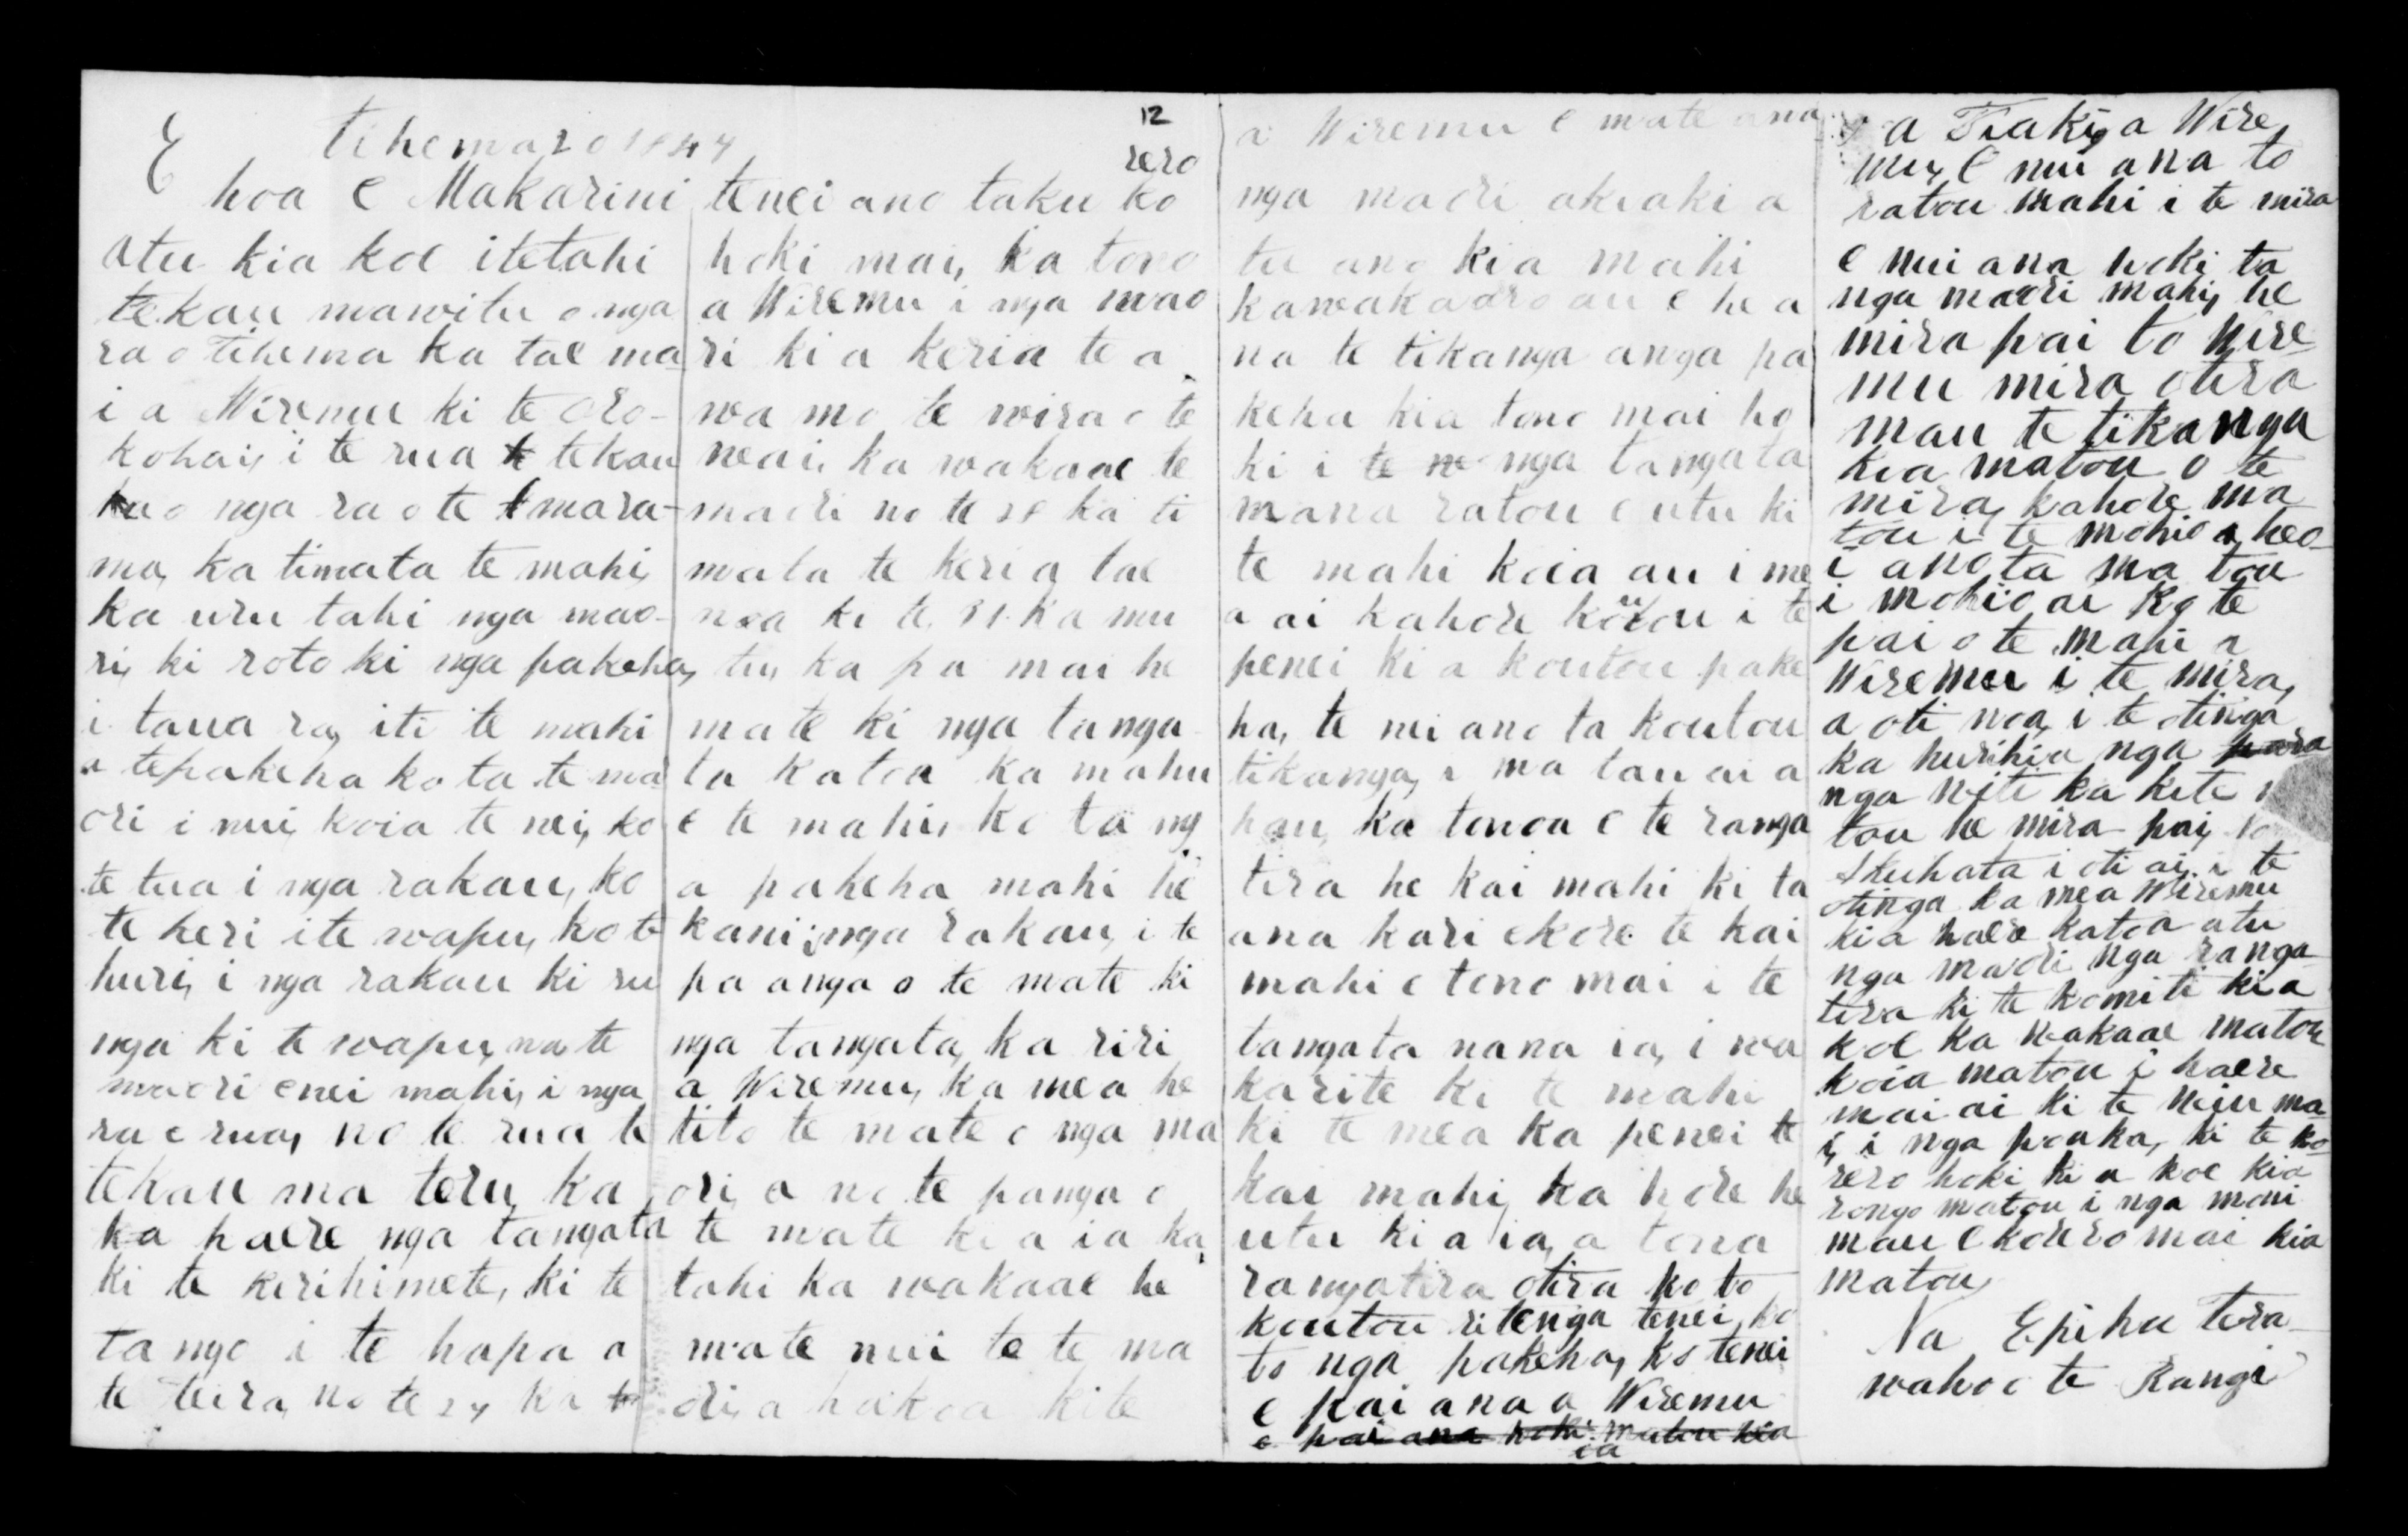 Tihema 20 1844
E
hoa e Makarini
tenei ano taku ko
12
rero
atu kia koe itetahi
tekau mawitu o nga
ra o Tihema ka tae ma
i a Wiremu ki te Oro-
kohai, i te rua te tekau
o nga ra o te mara-
ma, ka timata te mahi,
ka uru tahi nga mao-
ri, ki roto ki nga pakeha,
i taua ra, iti te mahi
a tepakeha ko ta te ma
ori i nui, koia te nei, ko
te tua i nga rakau, ko
te keri ite wapu, ko te
huri, i nga rakau ki ru
nga ki te wapu, na te
maori enei mahi, i nga
ra e rua, no te rua te
tekau ma toru, ka
ka haere nga tangata
ki te kirihimete, ki te
tango i te hapa a
te teira, no te 27 ka
hoki mai, ka tono
a Wiremu i nga mao
ri kia keria te a
wa mo te wira o te
weai, ka wakaae te
maori no te 28 ka ti
mata te keri a tae
noa ki te 31. ka mu
tu, ka pa mai he
mate ki nga tanga
ta katoa ka mahu
e te mahi, ko ta ng
a pakeha mahi he
kani i nga rakau, i te
pa anga o te mate ki
nga tangata, ka riri
a Wiremu, ka mea he
tito te mate o nga ma
ori, a no te panga o
te mate ki a ia ka
tahi ka wakaae he
mate nui te te ma
ori, a hakoa kite
a Wiremu e mate ana
nga maori akiaki a
tu ano kia mahi
kawakaaro au e he a
na te tikanga anga pa
keha kia tono mai ho
ki i te nga tangata
mana ratou e utu ki
te mahi koia au i me
a ai kahore koutou i te
penei ki a koutou pake
ha, te nei ano ta koutou
tikanga, i ma tau ai a
hau, ka tonoa e te ranga
tira he kai mahi ki ta
ana kari ekore te kai
mahi e tono mai i te
tangata nana ia, i wa
karite ki te mahi
ki te mea ka penei te
kai mahi, ka hore he
utu ki a ia, a tona
rangatira otira ko to
koutou ritenga tenei, ko
to nga pakeha, ko tenei
e pai ana a Wiremu
e pai ana hoki matou kia
ia
a Tiaki, a Wire
mu, E nui ana to
ratou mahi i te mira
e nui ana hoki, ta
nga maori mahi, he
mira pai to Wire
mu mira otira
mau te tikanga
kia matou o te
mira, kahore ma
tou i te mohio, heo
i ano ta ma tou
i mohio ai ko te
pai o te mahi a
Wiremu i te mira,
a oti noa, i te otinga
ka hurihia nga para
nga witi ka kite
tou he mira pai,
i oti ai, i te
otinga ka mea Wiremu
kia haere katoa atu
nga maori nga ranga
tira ki te komiti kia
koe ka wakaae matou
koia matou i haere
mai ai ki te
i, i nga poaka, ki te ko
rero hoki ki a koe kia
rongo matou i nga moni
mau e korero mai kia
matou
Na Epiha tera
wahoo te Rangi